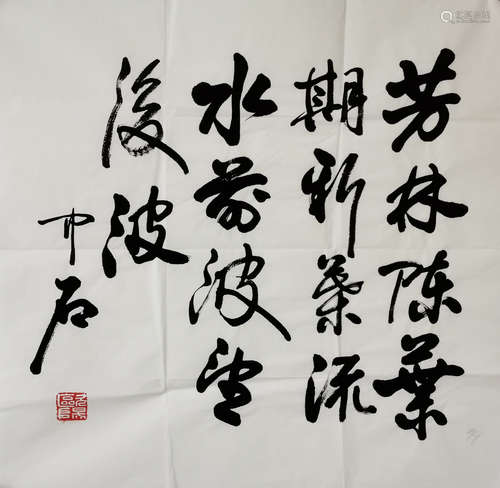 芳林陈葉
期新葉流
水前波望
後波
中石